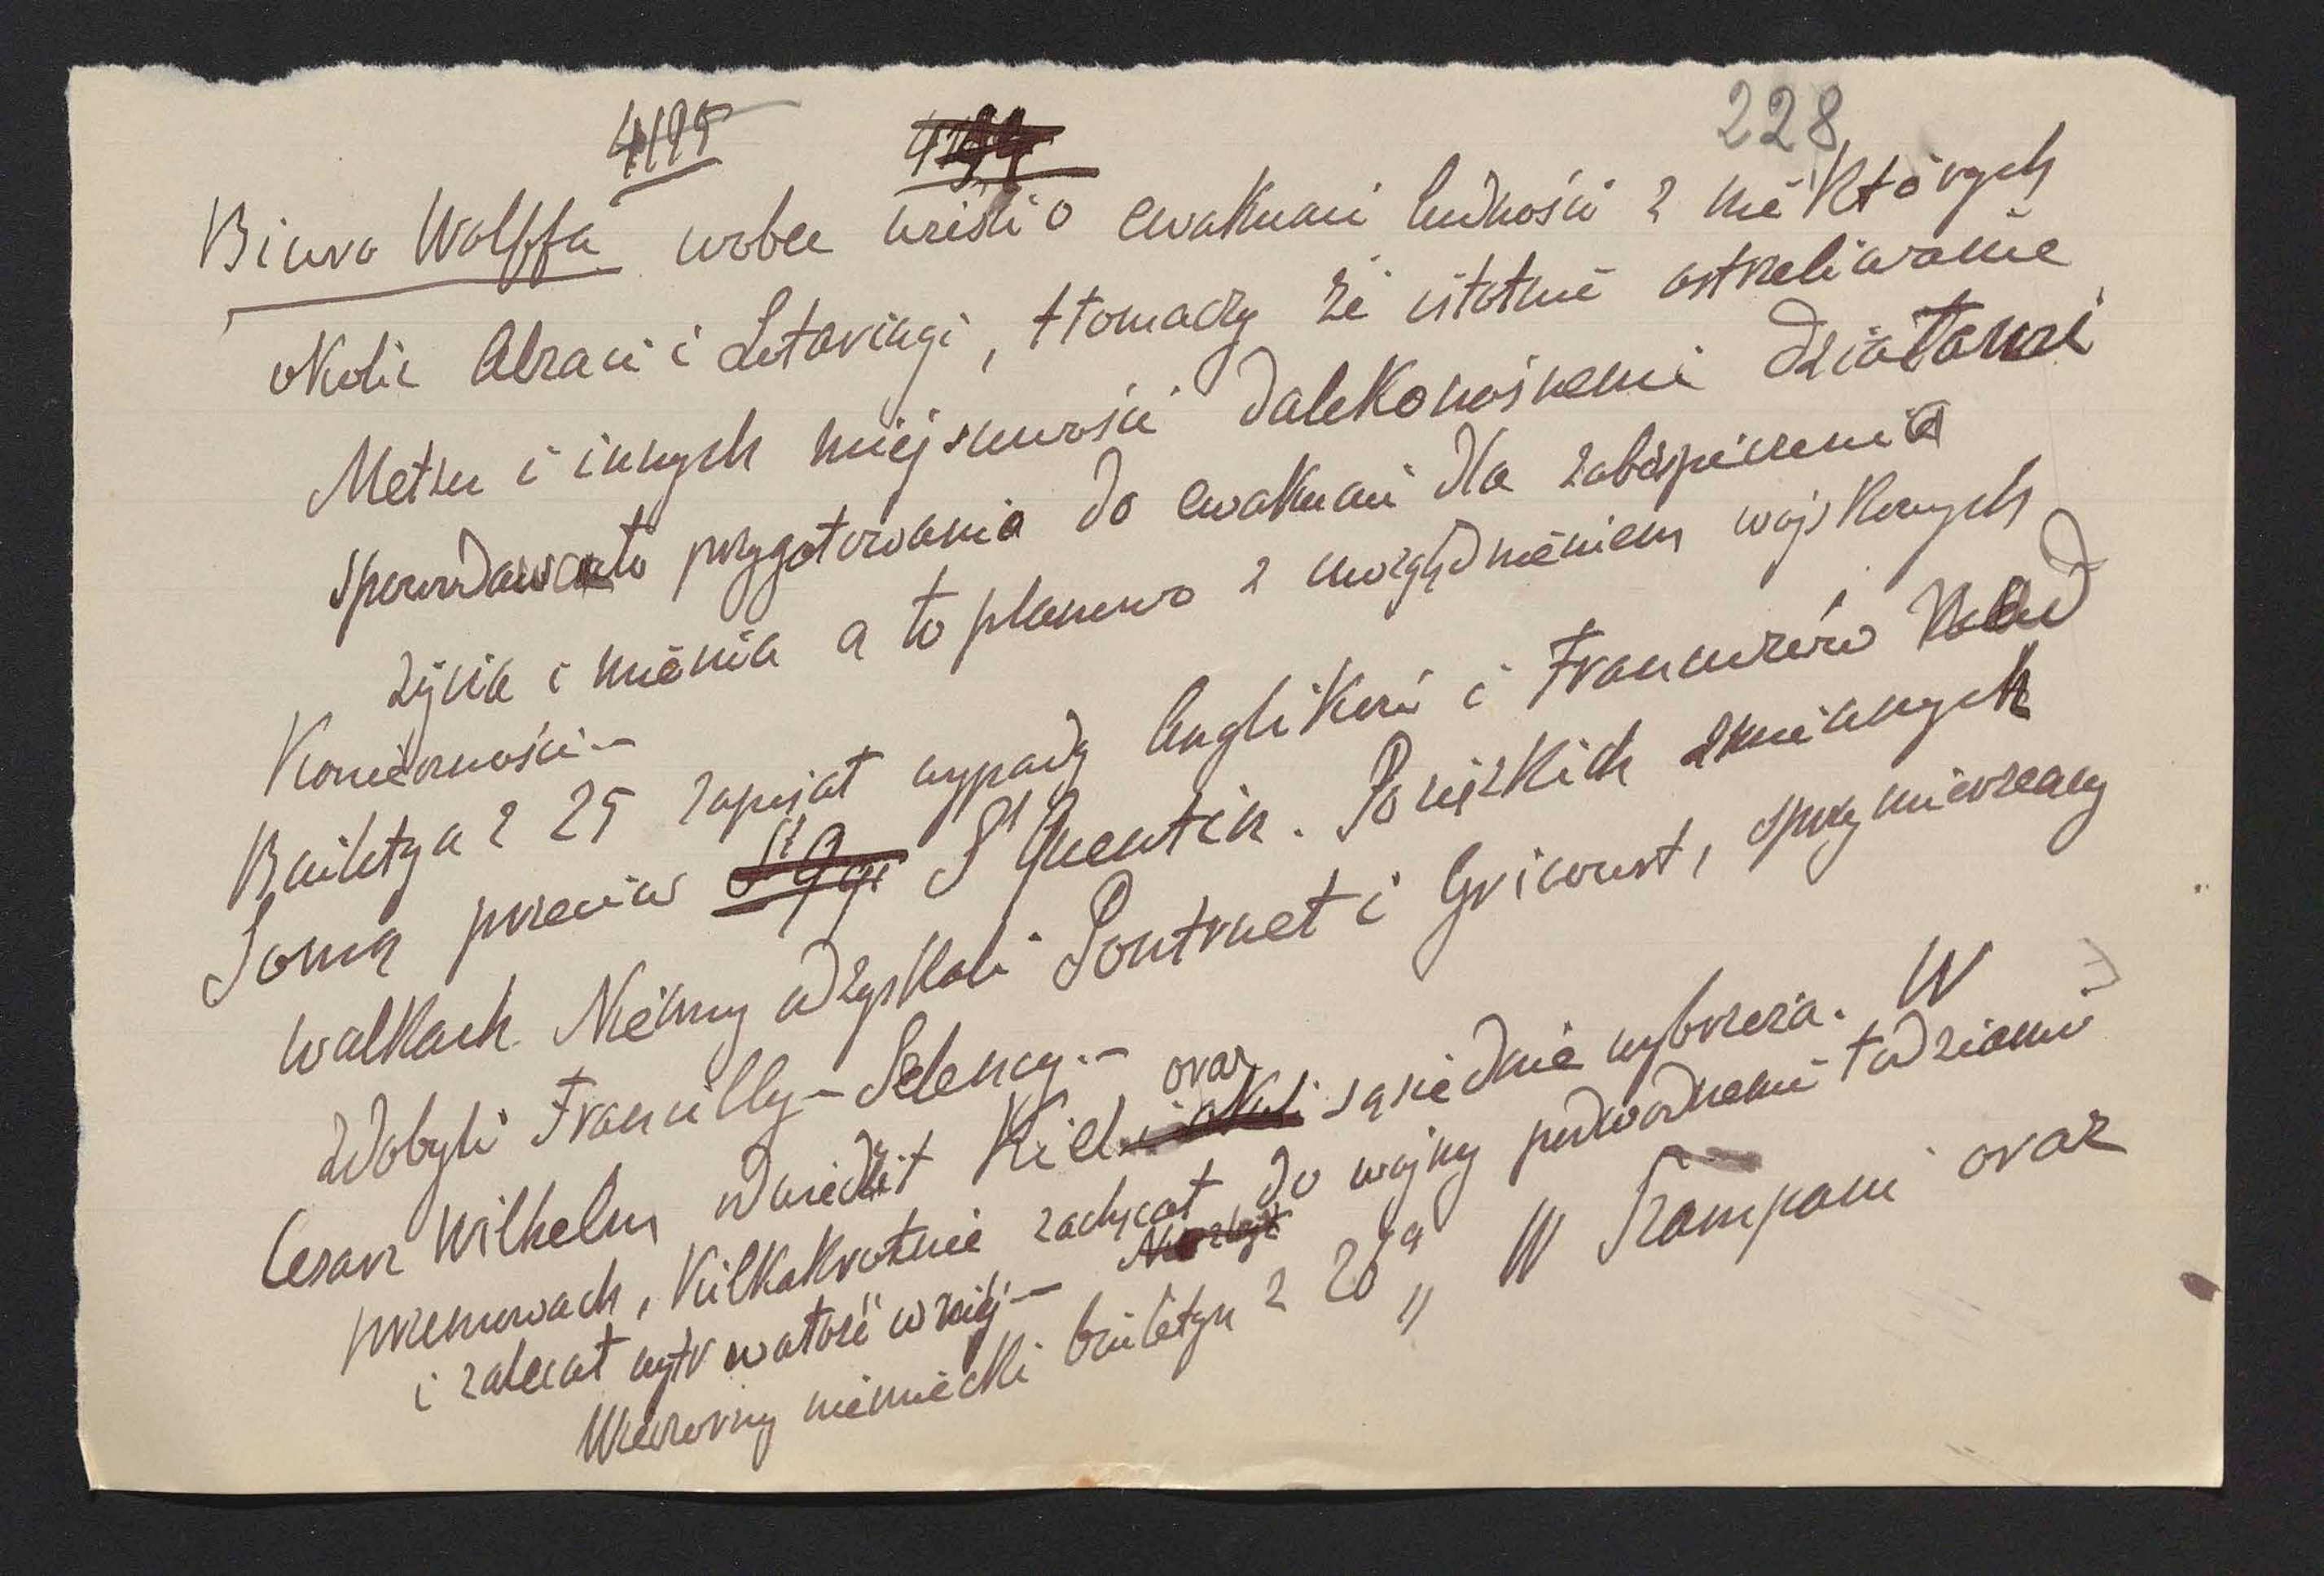 4195 4194 228
Biuro Wolffa wobec wieści o ewakuacji ludności z niektórych
okolic Alzacji i Lotaryngi, tłomaczy że istotnie ostrzeliwanie
Metzu i innych miejscowości dalekonośnemi działami
spowodowało przygotowania do ewakuacji dla zabezpieczenia
życia i mienia a to planowo z uwzględnieniem wojskowych
konieczności.—
Buletyn z 25 zapisał wypady Anglików i Francuzów nad
Somą przeciw St Quentin. Po ciężkich zmiennych
walkach Niemcy odzyskali Pontruet i Gricourt,
zdobyli Francilly-Selency.—
Cesarz Wilhelm odwiedził Kiel oraz sąsiednie wybrzeża. W
przemowach, kilkakrotnie zachęcał do wojny podwodnemi łodziami
i zalecał wytrwałość w niej—
Wieczorny niemiecki buletyn z 26go „W Szampanii oraz